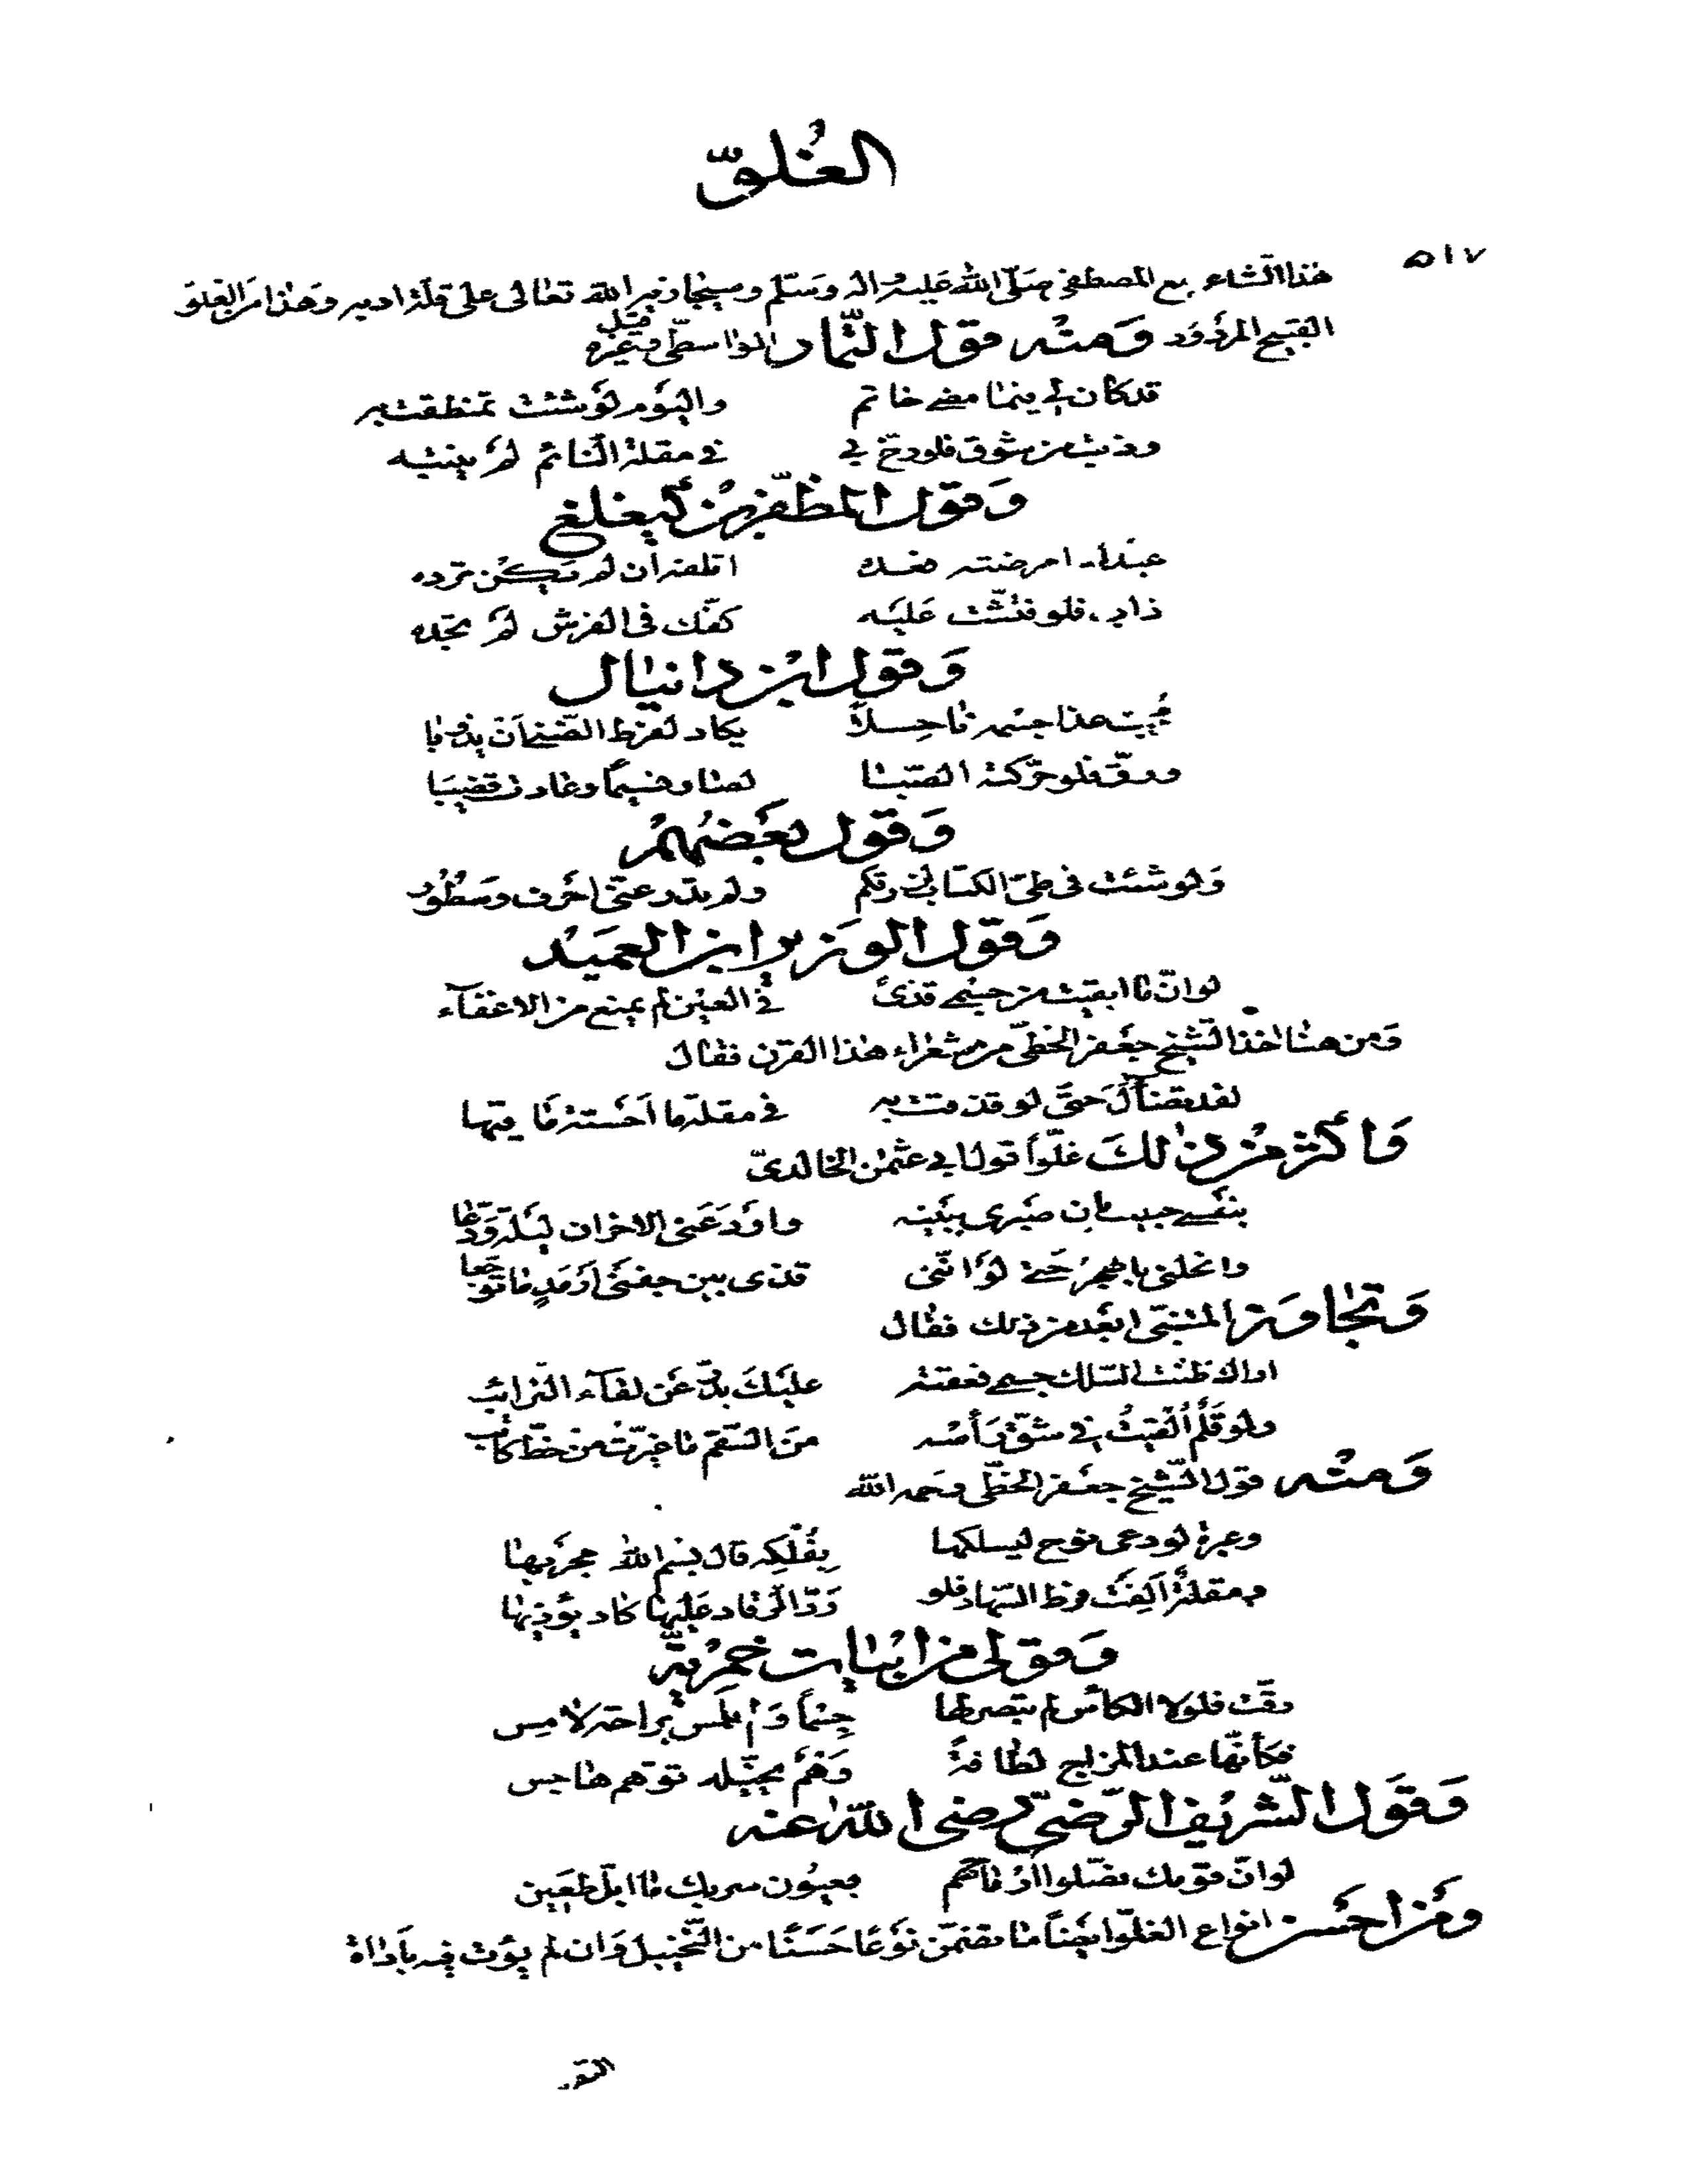 الغُلوّ
٥١٧
هٰذا الشاعر مع المصطفى صَلّى اللهُ عَليهِ واله وَسَلّم وسيجازيه الله تعالى على قلة ادبه وَهٰذا مِن الغلوّ
القبيح المردُود وَمنْه قول التّمار الواسطى وغيره
قد كان لى فيما مضى خاتم واليَوم لو شئت تمنطقت به
وذبت من شوق فلو زجّ بى فى مقلة النّائم لم ينتبه
وَقول المظفّر بْن كيغلغ
عبدك امرضته فعده اتلفه ان لم تكن ترده
ذاب فلو فتّشت عَليه كفّك فى الفرش لَم تجده
وَقول ابْن دانيال
محبّ غدا جسمه ناحِلاً يكاد لفرط الضنى اَن يذوبا
ورقّ فلو حرّكته الصّبا لصار نسيماً وعادت قضيبَا
وَقول بعَضهُمْ
وَلو شئت فى طىّ الكتاب لزرتكم ولم تدر عنّى احرف وسُطُور
وَقول الوَزير ابن العميْد
لو انّ ما ابقيت من جسْمى قذىً فى العيْن لم يمنع من الاغفآء
وَمن هنا اخذ الشّيخ جعْفر الخطّى من شعراء هذا القرن فقال
لقد تضاءلَ حتّى لو قذفت به فى مقلة ما اَحسّته مَاقيها
وَاكثر مْن ذٰلكَ غلّواً قول ابى عثمٰن الخالدىّ
بنفسى حبيب بان صبرى ببَينه واوْدَعَنى الاحزان ليَلة وَدّعَا
وانحلنى بالهجرُ حَتى لوْ انّنى قذى بين جفنَى ارْمَدٍ ما توجّعا
وَتجاوَز المتنبّى ابعَد من ذلك فقال
اراك ظننت السّلك جسمى فعقته عليَكَ بدرّ عَن لقآء التّرائب
ولو قَلَمٌ اُلْقيتُ فى شقّ رَأسه منَ السّقم ما غيّرت من خطّ كاتب
وَمنْه قول الشّيخ جعَفر الخطّى رحَمه الله
وعبرة لو دعى نوح ليسلكها بفُلْكِه قال بسْم اللهِ مجرَيها
ومقلةٌ اَلِفَت فرط السّهاد فلو رَدّ الرقاد عَليها كاد يؤذيها
وَقولى من ابْيات خمرْيّة
رقّت فلولا الكأس لم تبصر لها جِسْماً وَلم تلمس براحة لامِس
فكأنّها عند المزاج لطافةً وَهْم يخيّله توهّم هاجس
وَقَول الشّريف الرّضىّ رضى اللهُ عنه
لو انّ قومك نصّلوا ارْماحَهم بعيُون سربك ما ابلّ طعَين
ومن احسَن انواع الغلّو ايضاً ما تضمّن نوْعَا حَسَنًا من التّخييل وَان لم يؤت فيه باَداة
التقر